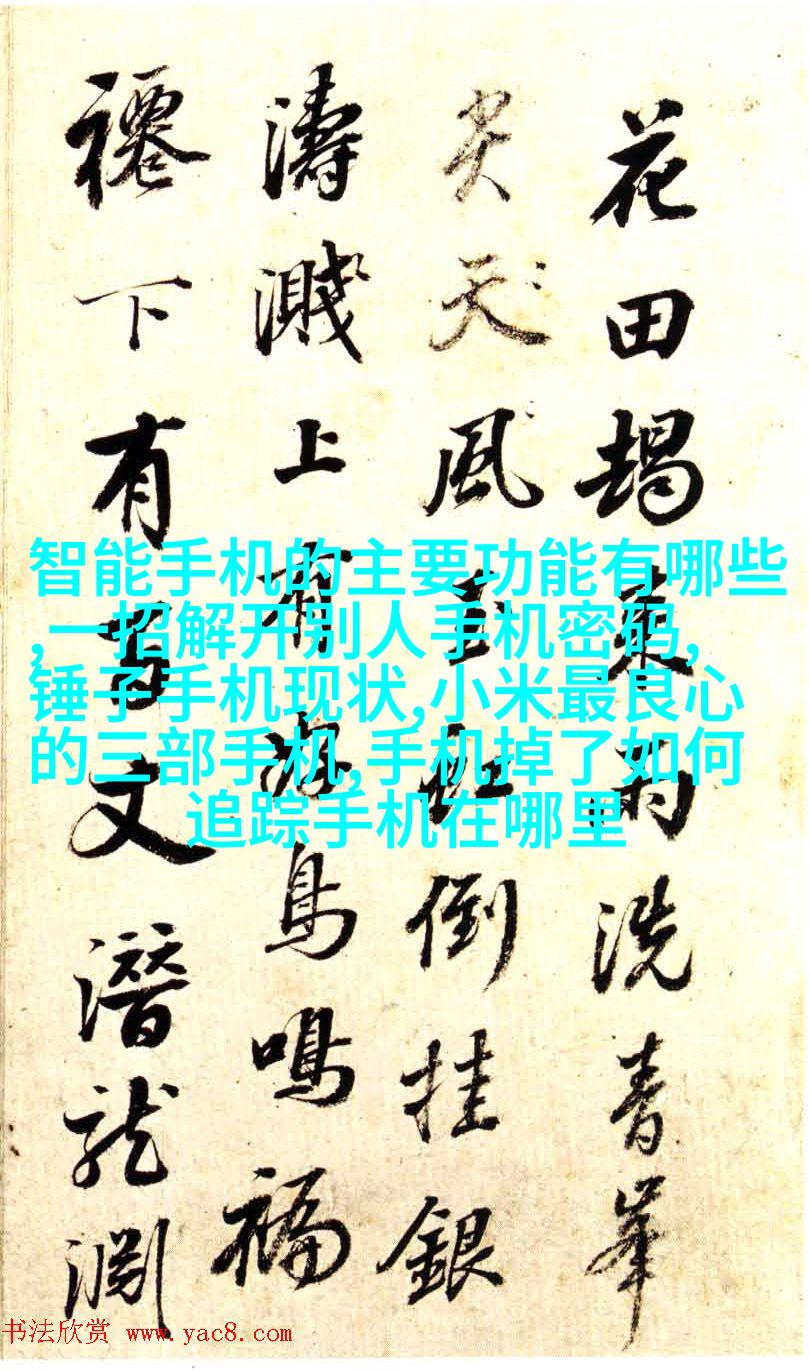 花田朅來雨洗青峯
尖天風虹倒挂銀
濤濺上有鳥鳴福
下有文潛龍淵
智能手机的主要功能有哪些
,一招解开别人手机密码,
锤子手机现状,小米最良心
的三部手机,手机掉了如何
追踪手机在哪里
书法欣赏 www.yac8.com